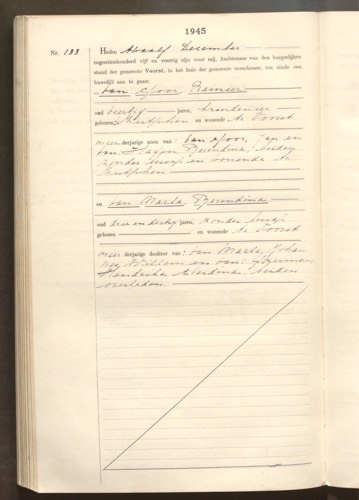 1945
Nr. 133 Heden twaalf December
negentienhonderd vijf en veertig zijn voor mij, Ambtenaar van den burgerlijken
stand der gemeente Voorst, in het huis der gemeente verschenen, ten einde een
huwelijk aan te gaan:
van Reinier
oud veertig jaren,
geboren te Zutphen en wonende te Voorst
meerderjarige zoon van: Jan en
van Berendina, beiden
zonder beroep en wonende te
Zutphen
en van Marle, Berendina
oud drie en dertig jaren, zonder beroep
geboren en wonende te Voorst
meerderjarige dochter van: van Marle, Johan
Willem en van:
Hendrika Berdina, beiden
overleden.